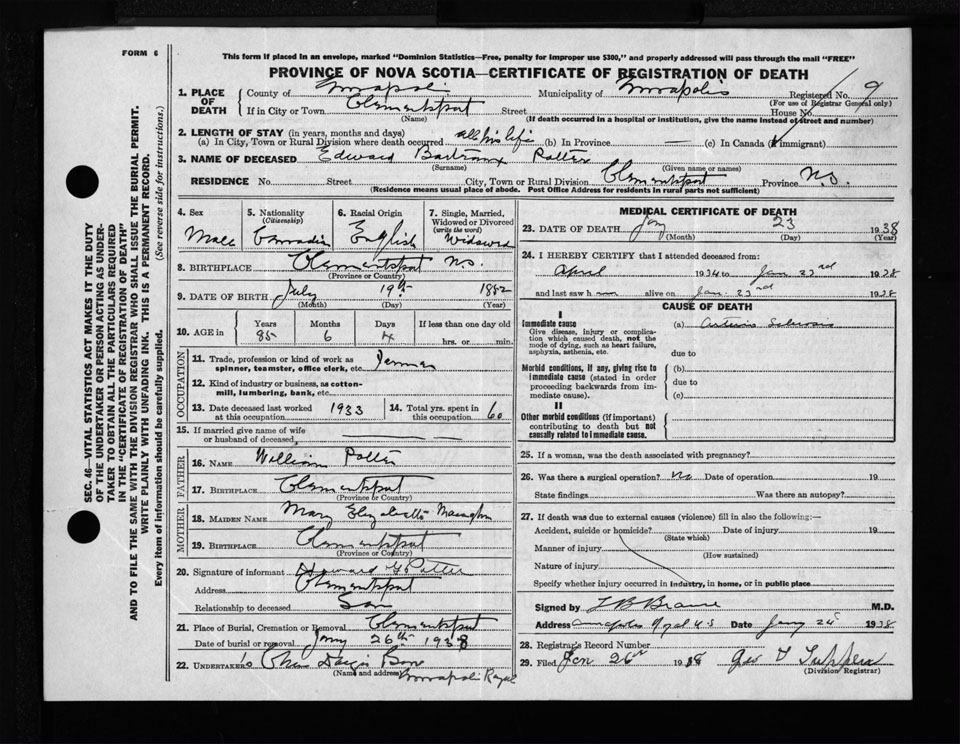 FORM 6
This form if placed in an envelope, marked "Dominion Statistics—Free, penalty for improper use $300," and properly addressed will pass through the mail "FREE"
PROVINCE OF NOVA SCOTIA—CERTIFICATE OF REGISTRATION OF DEATH
1. PLACE OF DEATH County of Annapolis Municipality of Annapolis Registered No. 9
(For use of Registrar General only)
If in City or Town Clementsport Street House No.
(Name) (If death occurred in a hospital or institution, give the name instead of street and number)
2. LENGTH OF STAY (in years, months and days)
(a) In City, Town or Rural Division where death occurred all his life (b) In Province — (c) In Canada (if immigrant)
3. NAME OF DECEASED Edward Potter
(Surname) (Given name or names)
RESIDENCE No. Street City, Town or Rural Division Clementsport Province N.S.
(Residence means usual place of abode. Post Office Address for residents in rural parts not sufficient)
4. Sex Male
5. Nationality (Citizenship) Canadian
6. Racial Origin English
7. Single, Married, Widowed or Divorced (write the word) Widowed
8. BIRTHPLACE Clementsport N.S.
(Province or Country)
9. DATE OF BIRTH July 19th 1852
(Month) (Day) (Year)
10. AGE in Years 85 Months 6 Days 4 If less than one day old hrs. or min.
OCCUPATION
11. Trade, profession or kind of work as spinner, teamster, office clerk, etc. Farmer
12. Kind of industry or business, as cotton-mill, lumbering, bank, etc.
13. Date deceased last worked at this occupation 1933
14. Total yrs. spent in this occupation 60
15. If married give name of wife or husband of deceased
FATHER
16. NAME William Potter
17. BIRTHPLACE Clementsport
(Province or Country)
MOTHER
18. MAIDEN NAME Mary Elizabeth
19. BIRTHPLACE Clementsport
(Province or Country)
20. Signature of informant Howard G Potter
Address Clementsport
Relationship to deceased Son
21. Place of Burial, Cremation or Removal Clementsport
Date of burial or removal Jany 26th 1938
22. UNDERTAKER'S
(Name and address) Annapolis Royal
MEDICAL CERTIFICATE OF DEATH
23. DATE OF DEATH Jany 23 1938
(Month) (Day) (Year)
24. I HEREBY CERTIFY that I attended deceased from:
April 1934 to Jan 23rd 1938
and last saw h alive on Jan. 23rd 1938
CAUSE OF DEATH
I
Immediate cause
Give disease, injury or complication which caused death, not the mode of dying, such as heart failure, asphyxia, asthenia, etc.
(a) Arterio Sclerosis
due to
Morbid conditions, if any, giving rise to immediate cause (stated in order proceeding backwards from immediate cause).
(b)
due to
(c)
II
Other morbid conditions (if important) contributing to death but not causally related to immediate cause.
25. If a woman, was the death associated with pregnancy?
26. Was there a surgical operation? No Date of operation 19
State findings Was there an autopsy?
27. If death was due to external causes (violence) fill in also the following:—
Accident, suicide or homicide? Date of injury 19
(State which)
Manner of injury
(How sustained)
Nature of injury
Specify whether injury occurred in industry, in home, or in public place
Signed by M.D.
Address Annapolis Royal N.S Date Jany 24 1938
28. Registrar's Record Number
29. Filed Jan 26th 1938
(Division Registrar)
SEC. 46—VITAL STATISTICS ACT MAKES IT THE DUTY
OF THE UNDERTAKER OR PERSON ACTING AS UNDER-
TAKER TO OBTAIN ALL THE PARTICULARS REQUIRED
IN THE "CERTIFICATE OF REGISTRATION OF DEATH"
AND TO FILE THE SAME WITH THE DIVISION REGISTRAR WHO SHALL ISSUE THE BURIAL PERMIT.
WRITE PLAINLY WITH UNFADING INK. THIS IS A PERMANENT RECORD.
Every item of information should be carefully supplied. (See reverse side for instructions.)